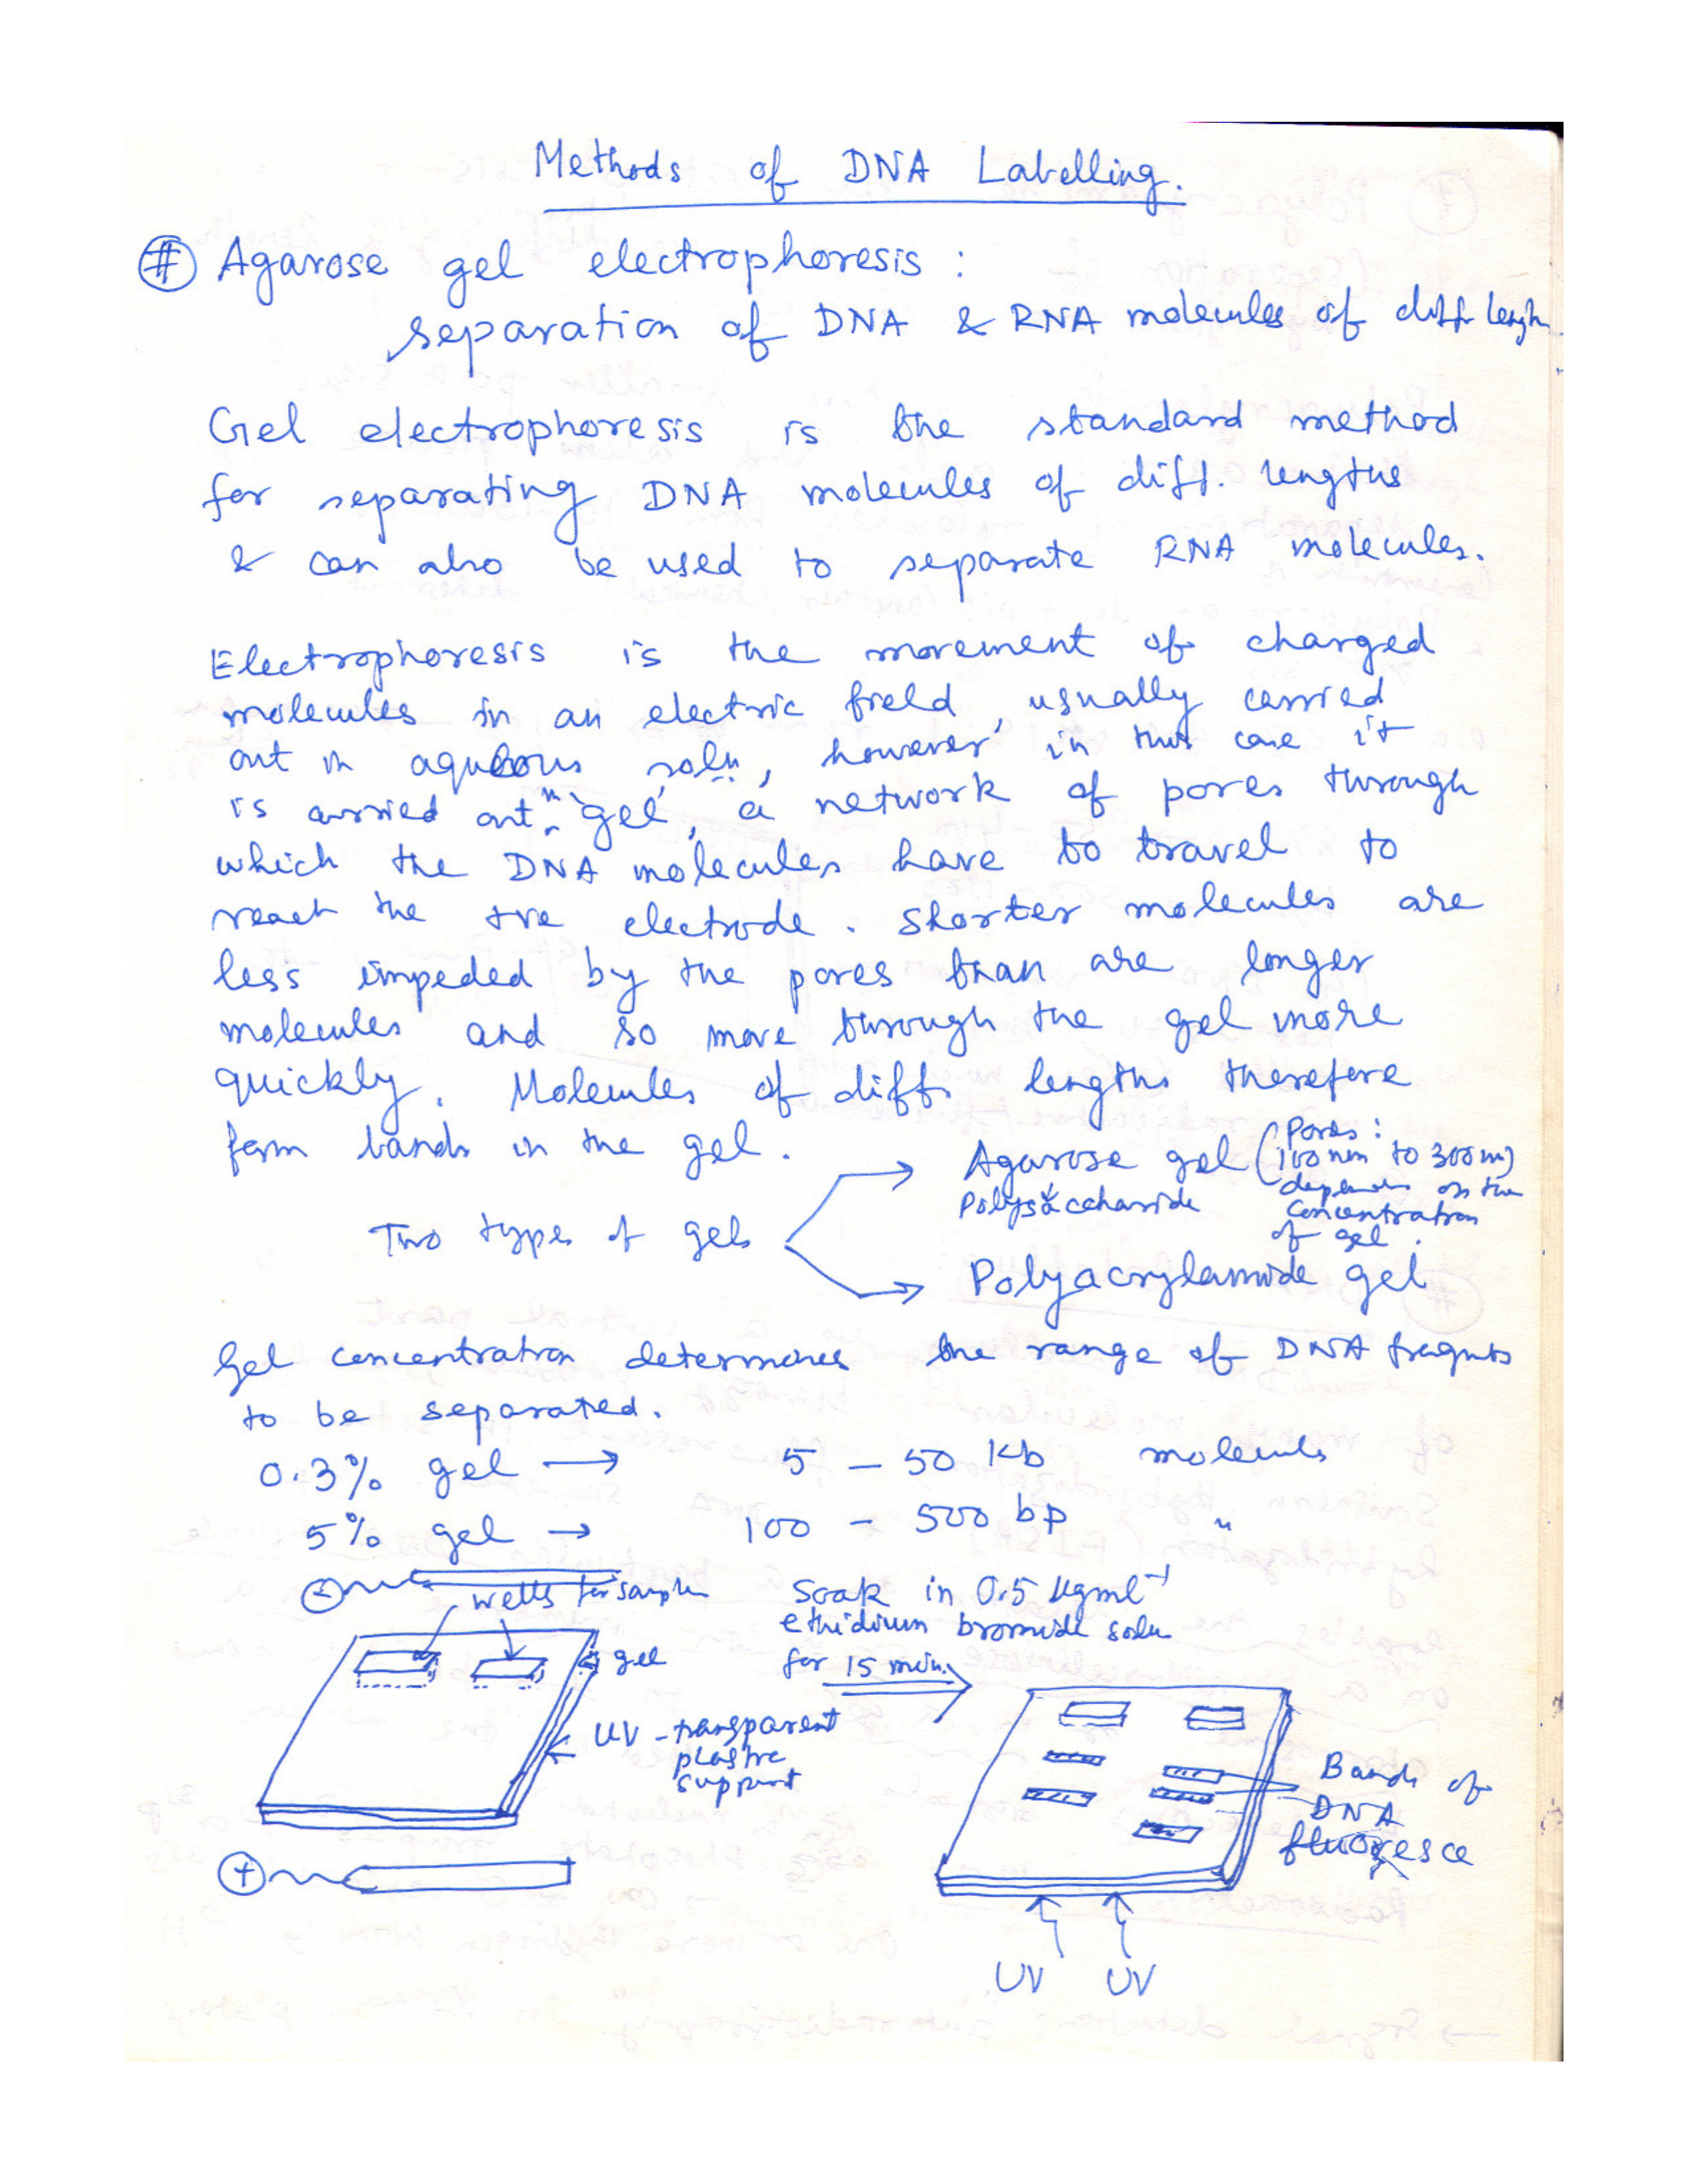 Methods of DNA Labelling.
# Agarose gel electrophoresis :
separation of DNA & RNA molecules of diff length
Gel electrophoresis is the standard method
for separating DNA molecules of diff. lengths
& can also be used to separate RNA molecules.
Electrophoresis is the movement of charged
molecules in an electric field, usually carried
out in aqueous soln, however in this case it
is carried out in 'gel', a network of pores through
which the DNA molecules have to travel to
reach the +ve electrode. Shorter molecules are
less impeded by the pores than are longer
molecules and so move through the gel more
quickly. Molecules of diff. lengths therefore
form bands in the gel.
Two types of gels
Agarose gel (Pores:
100 nm to 300 nm)
Polysaccharide
depends on the
concentration
of gel.
Polyacrylamide gel
Gel concentration determines the range of DNA fragmts
to be separated.
0.3% gel → 5 – 50 Kb molecules
5% gel → 100 – 500 bp "
-
wells for sample
gel
UV - transparent
plastic
support
+
Soak in 0.5 μgml⁻¹
ethidium bromide soln
for 15 min.
Bands of
DNA
fluoresce
UV UV